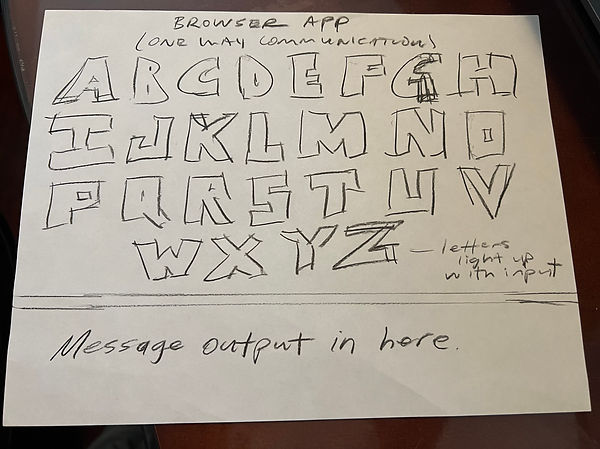 BROWSER APP
(ONE WAY COMMUNICATION)
A B C D E F G H
I J K L M N O
P Q R S T U V
W X Y Z — letters
light up
with input
Message output in here.